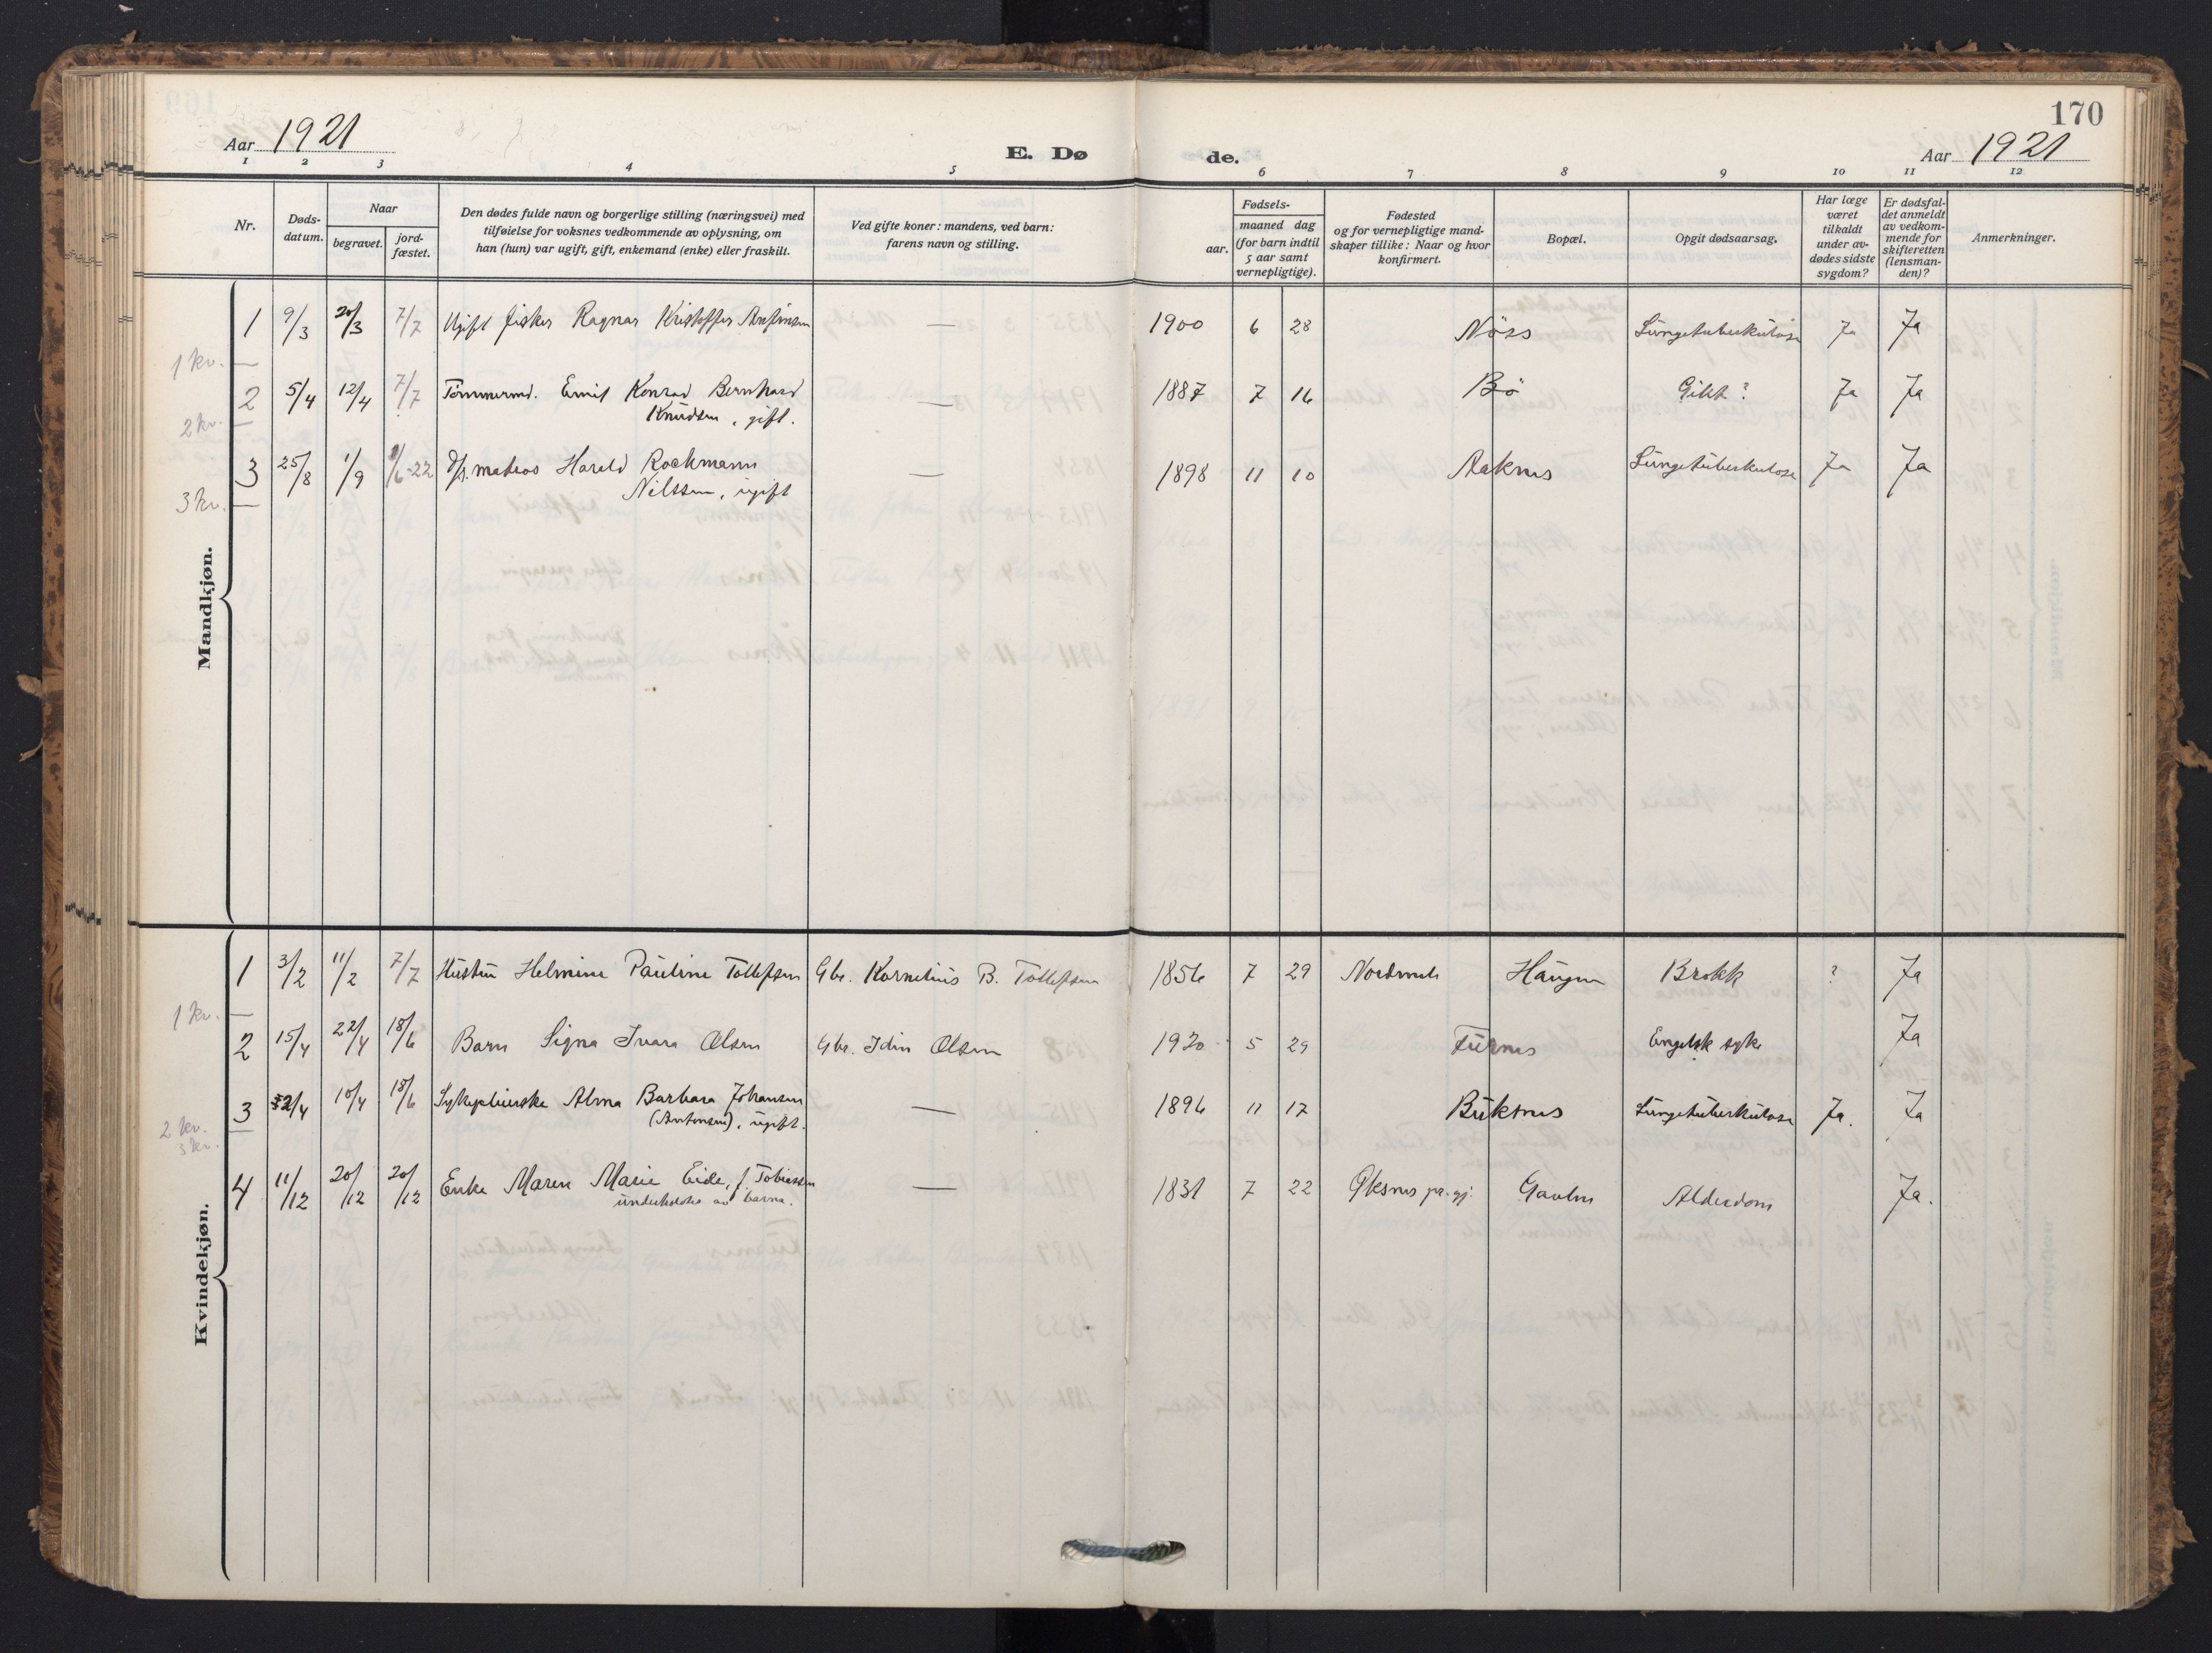 170
Aar 1921
E. Dø
de.
Aar 1921
1 2 3 4 5 6 7 8 9 10 11 12
Nr.
Døds-
datum.
Naar
begravet.
jord-
fæstet.
Den dødes fulde navn og borgerlige stilling (næringsvei) med
tilføielse for voksnes vedkommende av oplysning, om
han (hun) var ugift, gift, enkemand (enke) eller fraskilt.
Ved gifte koner: mandens, ved barn:
farens navn og stilling.
Fødsels-
aar.
maaned dag
(for barn indtil
5 aar samt
vernepligtige).
Fødested
og for vernepligtige mand-
skaper tillike: Naar og hvor
konfirmert.
Bopæl.
Opgit dødsaarsag.
Har læge
været
tilkaldt
under av-
dødes sidste
sygdom?
Er dødsfal-
det anmeldt
av vedkom-
mende for
skifteretten
(lensman-
den)?
Anmerkninger.
Mandkjøn.
1 9/3 20/3 7/7 Ugift fisker Ragnar Kristoffer — 1900 6 28 Nöss Lungetuberkulose Ja Ja
1 kv. —
2 5/4 12/4 7/7 Tömmermd. Emil Konrad Bernhard — 1887 7 16 Bö Gikt? Ja Ja
Knudsen, gift.
2 kv. —
3 25/8 1/9 /6-22 matros Harald Rockmann — 1898 11 10 Aaknes Lungetuberkulose Ja Ja
Nilssen, ugift
3 kv. —
Kvindekjøn.
1 3/2 11/2 7/7 Hustru Helmine Pauline Tollefsen Gbr. Kornelius B. Tollefsen 1856 7 29 Haugen Brokk ? Ja
1 kv. —
2 15/4 22/4 18/6 Barn Signa Ivara Olsen Gbr. Idin Olsen 1920 5 29 Furnes Engelsk syke Ja
3 2/4 10/4 18/6 Sykepleierske Alma Barbara Johansen — 1896 11 17 Buksnes Lungetuberkulose Ja. Ja
(Antonsen), ugift.
2 kv. —
3 kv.
4 11/12 20/12 20/12 Enke Maren Marie Eide, f. Tobiassen — 1831 7 22 Öksnes pr.gj. Gaulen Alderdom Ja.
underholdes av barna.